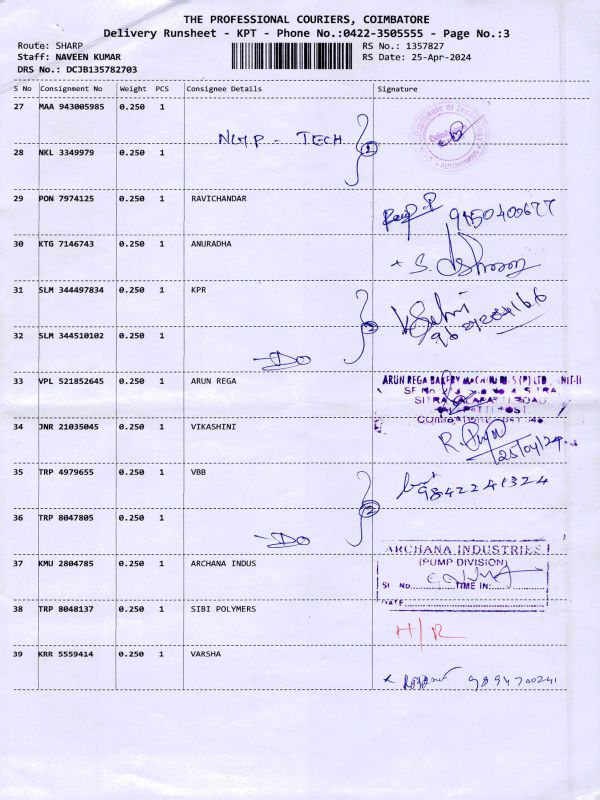 THE PROFESSIONAL COURIERS, COIMBATORE
Delivery Runsheet - KPT - Phone No.:0422-3505555 - Page No.:3
Route: SHARP RS No.: 1357827
Staff: NAVEEN KUMAR RS Date: 25-Apr-2024
DRS No.: DCJB135782703
S No Consignment No Weight PCS Consignee Details Signature
27 MAA 943005985 0.250 1
TECH 2
28 NKL 3349979 0.250 1
29 PON 7974125 0.250 1 RAVICHANDAR
9150400677
30 KTG 7146743 0.250 1 ANURADHA
31 SLM 344497834 0.250 1 KPR
32 SLM 344510102 0.250 1
Do 2
33 VPL 521852645 0.250 1 ARUN REGA
ARUN REGA BAKERY
34 JNR 21035045 0.250 1 VIKASHINI
25/04/24
35 TRP 4979655 0.250 1 VBB
9842241324
36 TRP 8047805 0.250 1
Do 2
37 KMU 2804785 0.250 1 ARCHANA INDUS
ARCHANA INDUSTRIES
(PUMP DIVISION)
Sl No. TIME IN:
DATE
38 TRP 8048137 0.250 1 SIBI POLYMERS
H/R
39 KRR 5559414 0.250 1 VARSHA
9894700241